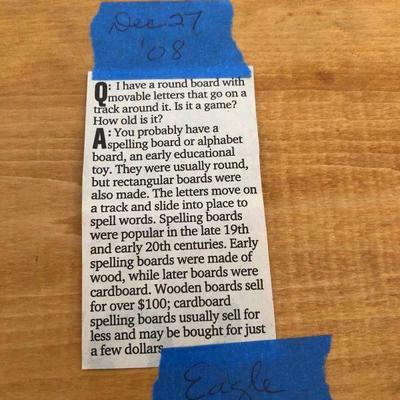 Dec 27
'08
Q: I have a round board with
movable letters that go on a
track around it. Is it a game?
How old is it?
A: You probably have a
spelling board or alphabet
board, an early educational
toy. They were usually round,
but rectangular boards were
also made. The letters move on
a track and slide into place to
spell words. Spelling boards
were popular in the late 19th
and early 20th centuries. Early
spelling boards were made of
wood, while later boards were
cardboard. Wooden boards sell
for over $100; cardboard
spelling boards usually sell for
less and may be bought for just
a few dollars.
Eagle